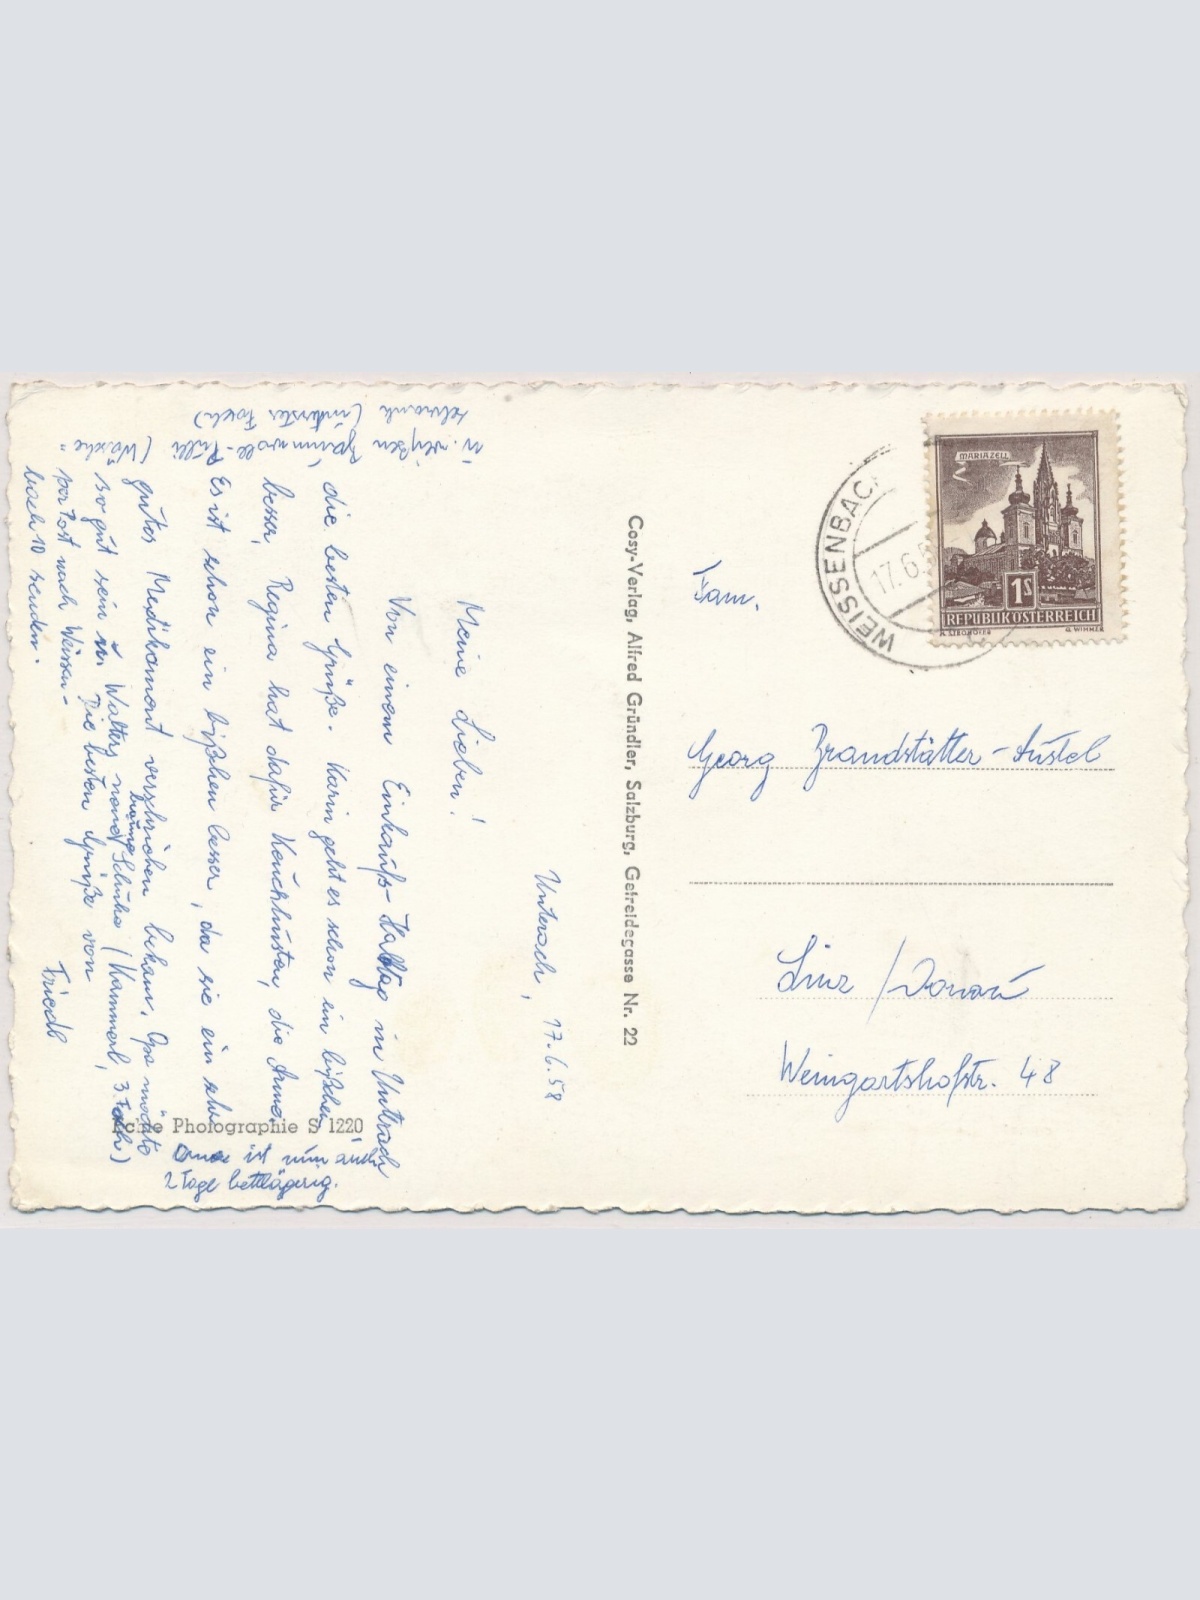 Unterach, 17.6.58
Meine Lieben!
Von einem Einkaufs-Halbtag in Unterach
die besten Grüße. Karin geht es schon ein bißchen
besser, Regina hat dafür Keuchhusten, die Arme.
Es ist schon ein bißchen besser, da sie ein sehr
gutes Medikament verschrieben bekam. Opa möchte
so gut sein u. Walters neue braune Schuhe (Kammerl, 3. Fach)
u. weißen Baumwoll-Pulli (Wäsche-
schrank (unterstes Fach)
per Post nach Weissen-
bach 10 senden.
Die besten Grüße von
Friedl
Oma ist nun auch
2 Tage bettlägerig.
Echte Photographie S 1220
Cosy-Verlag, Alfred Gründler, Salzburg, Getreidegasse Nr. 22
WEISSENBACH
17.6.5
MARIAZELL
1S
REPUBLIK ÖSTERREICH
G. WIMMER
Fam.
Georg Brandstätter-Austel
Linz / Donau
Weingartshofstr. 48